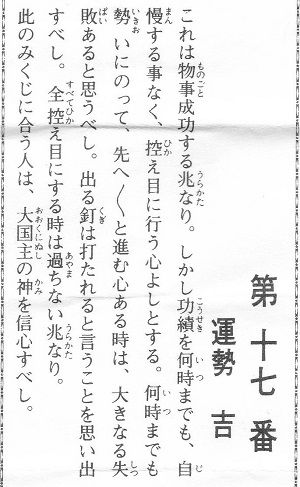 第十七番
運勢 吉
これは物事成功する兆なり。しかし功績を何時までも、自
慢する事なく、控え目に行う心よしとする。何時までも
勢いにのって、先へ〱と進む心ある時は、大きなる失
敗あると思うべし。出る釘は打たれると言うことを思い出
すべし。全控え目にする時は過ちない兆なり。
此のみくじに合う人は、大国主の神を信心すべし。